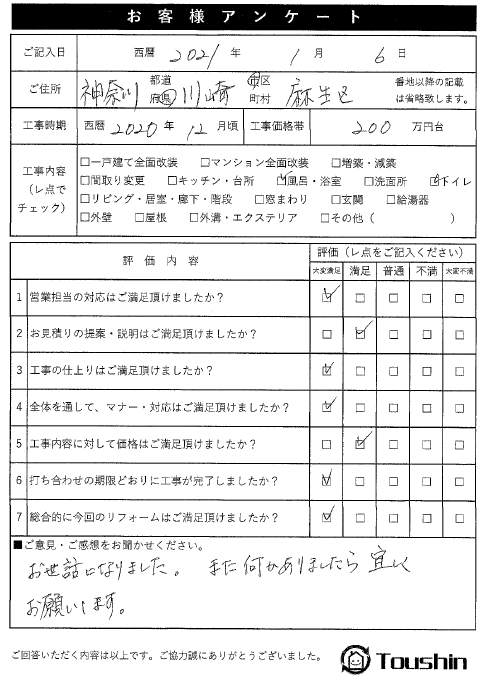 お客様アンケート
ご記入日 西暦 2021 年 1 月 6 日
ご住所 神奈川 都道府県 川崎 市区町村 麻生区 番地以降の記載は省略致します。
工事時期 西暦 2020 年 12 月頃 工事価格帯 200 万円台
工事内容（レ点でチェック）
□一戸建て全面改装 □マンション全面改装 □増築・減築
□間取り変更 □キッチン・台所 ☑風呂・浴室 □洗面所 ☑トイレ
□リビング・居室・廊下・階段 □窓まわり □玄関 □給湯器
□外壁 □屋根 □外溝・エクステリア □その他（ ）
評価内容 評価（レ点をご記入ください）
大変満足 満足 普通 不満 大変不満
1 営業担当の対応はご満足頂けましたか？ ☑ □ □ □ □
2 お見積りの提案・説明はご満足頂けましたか？ □ ☑ □ □ □
3 工事の仕上りはご満足頂けましたか？ ☑ □ □ □ □
4 全体を通して、マナー・対応はご満足頂けましたか？ ☑ □ □ □ □
5 工事内容に対して価格はご満足頂けましたか？ □ ☑ □ □ □
6 打ち合わせの期限どおりに工事が完了しましたか？ ☑ □ □ □ □
7 総合的に今回のリフォームはご満足頂けましたか？ ☑ □ □ □ □
■ご意見・ご感想をお聞かせください。
お世話になりました。また何かありましたら宜しく
お願いします。
ご回答いただく内容は以上です。ご協力誠にありがとうございました。
Toushin